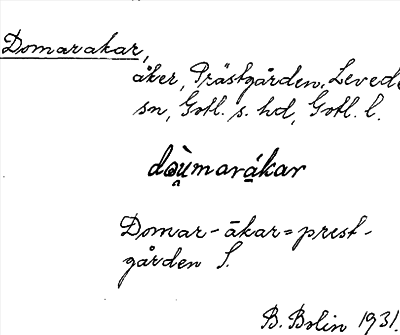 Domarakar,
åker, Prästgården, Levede
sn, Gotl. s. hd, Gotl. l.
dəù̯mará̤kar
Domar-ākar = prest-
gården S.
B. Bolin 1931.